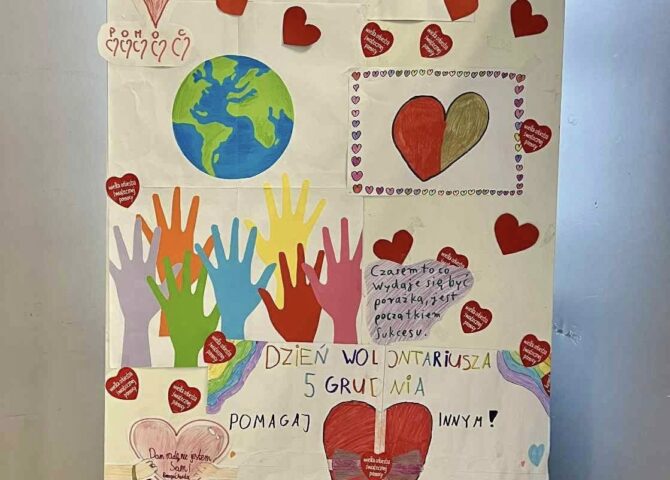 POMOC
wielka orkiestra
świątecznej
pomocy
wielka orkiestra
świątecznej
pomocy
wielka orkiestra
świątecznej
pomocy
wielka orkiestra
świątecznej
pomocy
Czasem to co
wydaje się być
porażką, jest
początkiem
sukcesu.
wielka orkiestra
wielka orkiestra
świątecznej
pomocy
wielka orkiestra
świątecznej
pomocy
wielka orkiestra
świątecznej
pomocy
DZIEŃ WOLONTARIUSZA
5 GRUDNIA
wielka orkiestra
świątecznej
pomocy
wielka orkiestra
świątecznej
pomocy
POMAGAJ INNYM!
Dam radę, nie jestem
Sam!
wielka orkiestra
świątecznej
pomocy